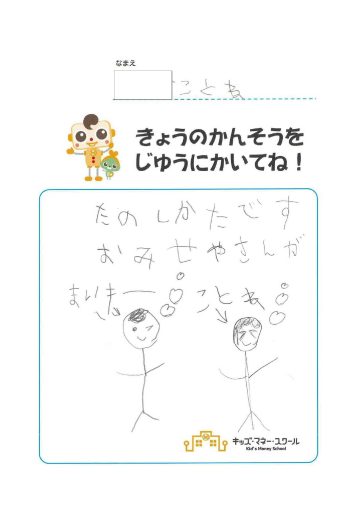 なまえ
ことね
きょうのかんそうを
じゆうにかいてね！
たのしかたです
おみせやさんが
まいまー ことね
キッズ・マネー・スクール
Kid's Money School